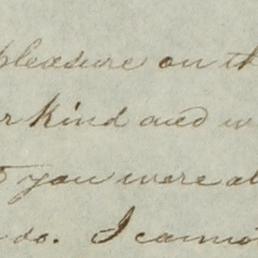 pleasure on th
r kind and w
you were al
do. I canno